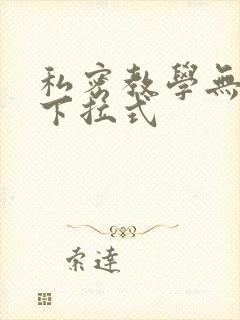 私密教學無
下拉式
索達